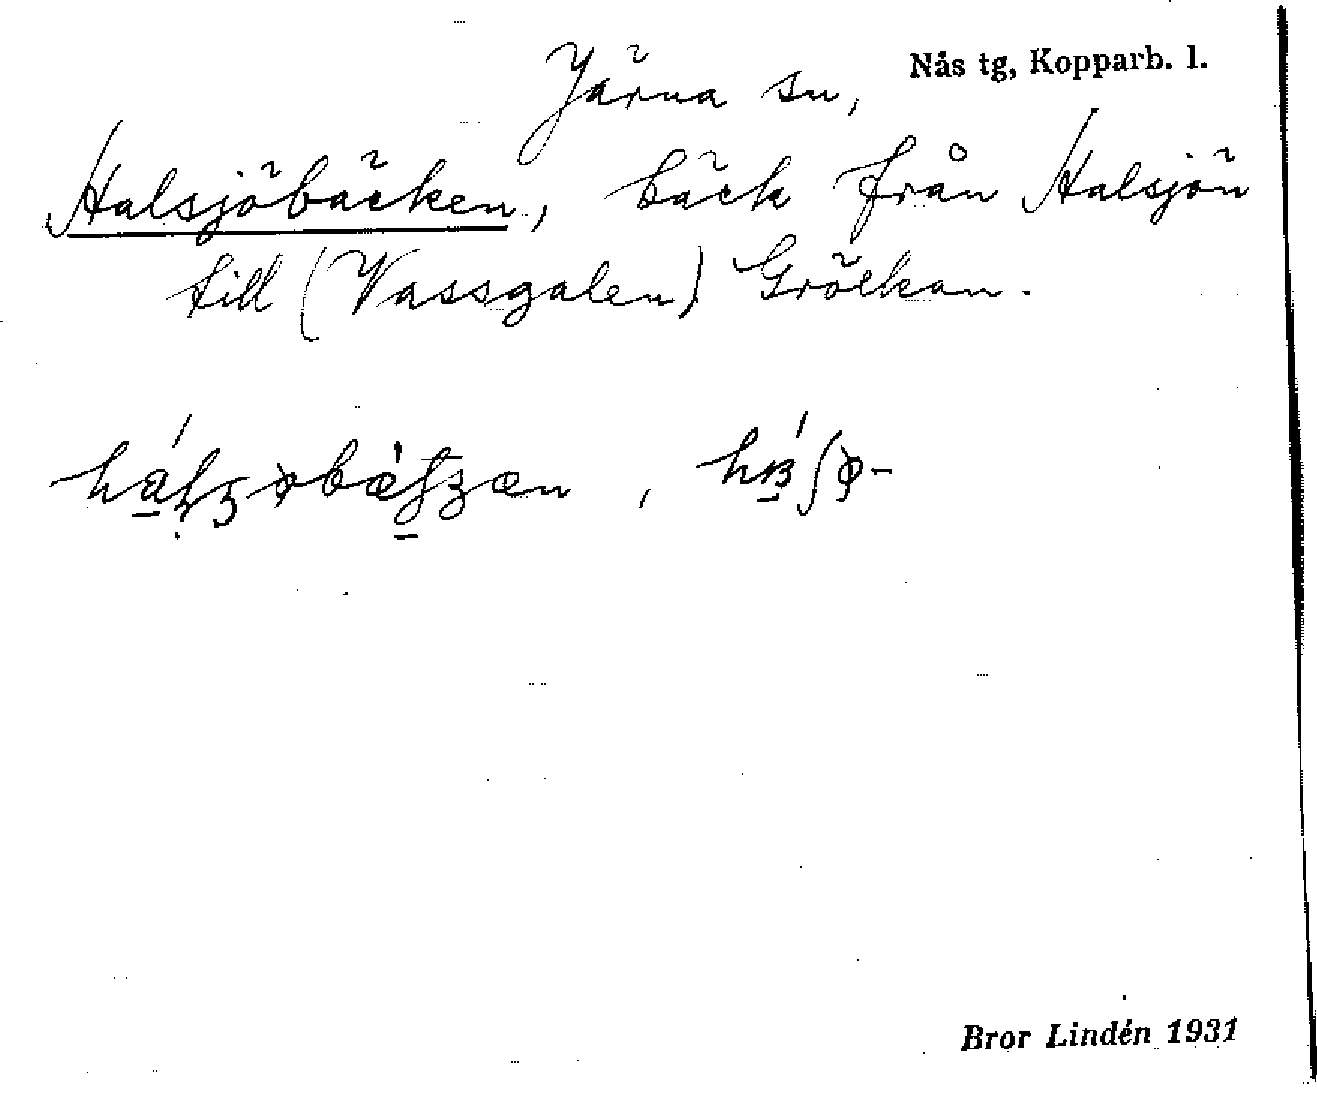 Järna sn, Nås tg, Kopparb. l.
Halsjöbäcken, bäck från Halsjön
till (Vassgalen) Gröckan.
Bror Lindén 1931